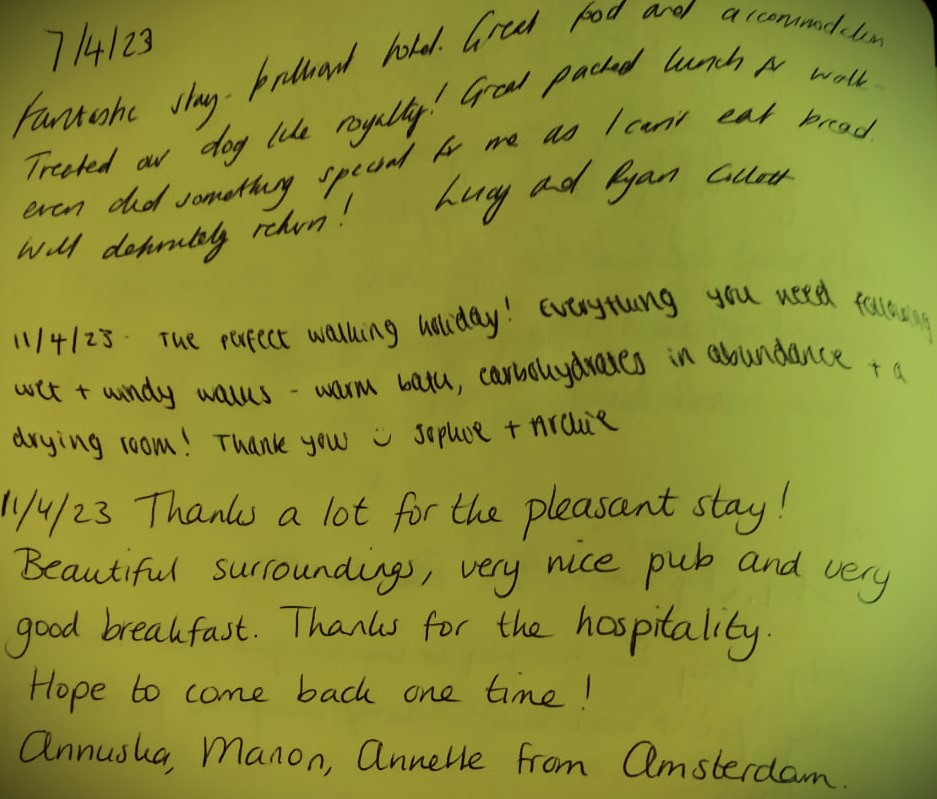 7/4/23
Fantastic stay. brilliant hotel. Great food and accommodation
Treated our dog like royalty! Great packed lunch for walk-
even did something special for me as I can't eat bread.
Will definitely return! Lucy and Ryan
11/4/23 - The perfect walking holiday! Everything you need following
wet + windy walks - warm bath, carbohydrates in abundance + a
drying room! Thank you :) Sophie + Archie
11/4/23 Thanks a lot for the pleasant stay!
Beautiful surroundings, very nice pub and very
good breakfast. Thanks for the hospitality.
Hope to come back one time!
Annuska, Manon, Annette from Amsterdam.